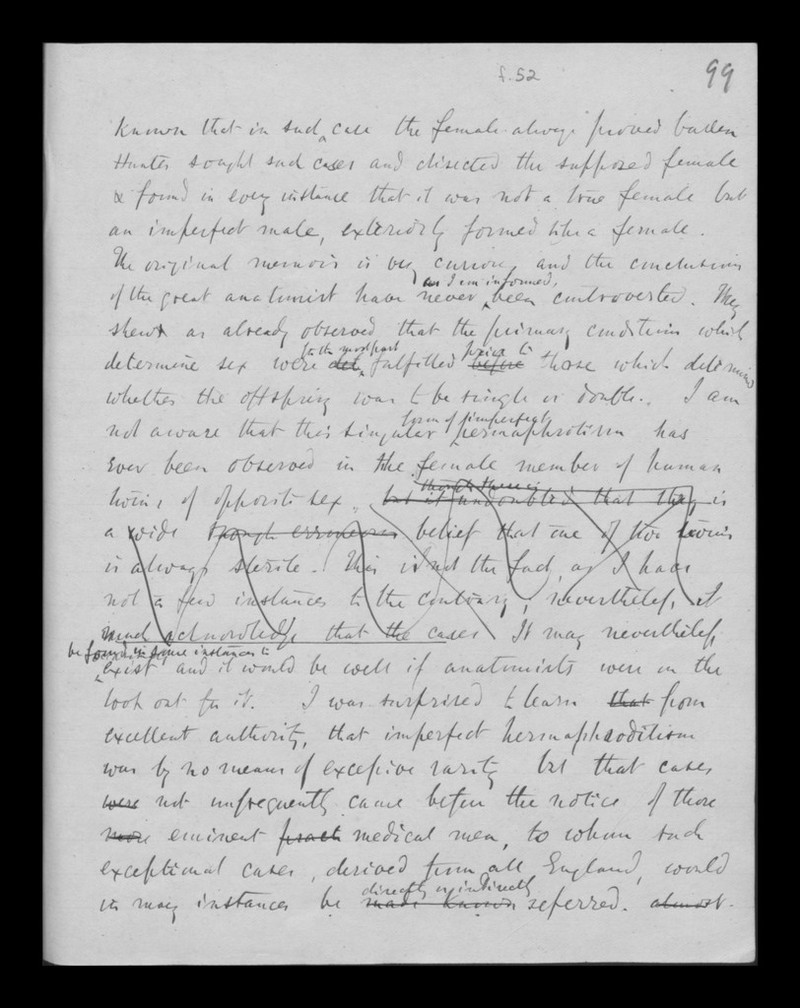 f. 52
99
Known that in such case the female always proved barren
Hunter sought such cases and disected the supposed female
& found in every instance that it was not a true female but
an imperfect male, exteriorly formed like a female.
The original memoir is very curious, and the conclusions
as I am informed,
of the great anatomist have never been controverted. They
shew as already observed that the primary conditions which
for the most part prior to
determine sex were det fulfilled before those which determined
whether the offspring was to be single or double. I am
form of imperfect
not aware that this singular hermaphrotism has
ever been observed in the female member of human
though there is
twins of opposite sex, but it undoubted that they is
a wide though erroneous belief that one of two twins
is always sterile. This is not the fact, as I have
not a few instances to the contrary; nevertheless, it
must acknowledge that the cases It may nevertheless,
be found in some instances to
exist and it would be well if anatomists were on the
look out for it. I was surprised to learn that from
excellent authority, that imperfect hermaphroditism
was by no means of excessive rarity but that cases
were not unfrequently came before the notice of those
more eminent pract medical men, to whom such
exceptional cases, derived from all England, would
directly or indirectly
in many instances be made known referred. almost.